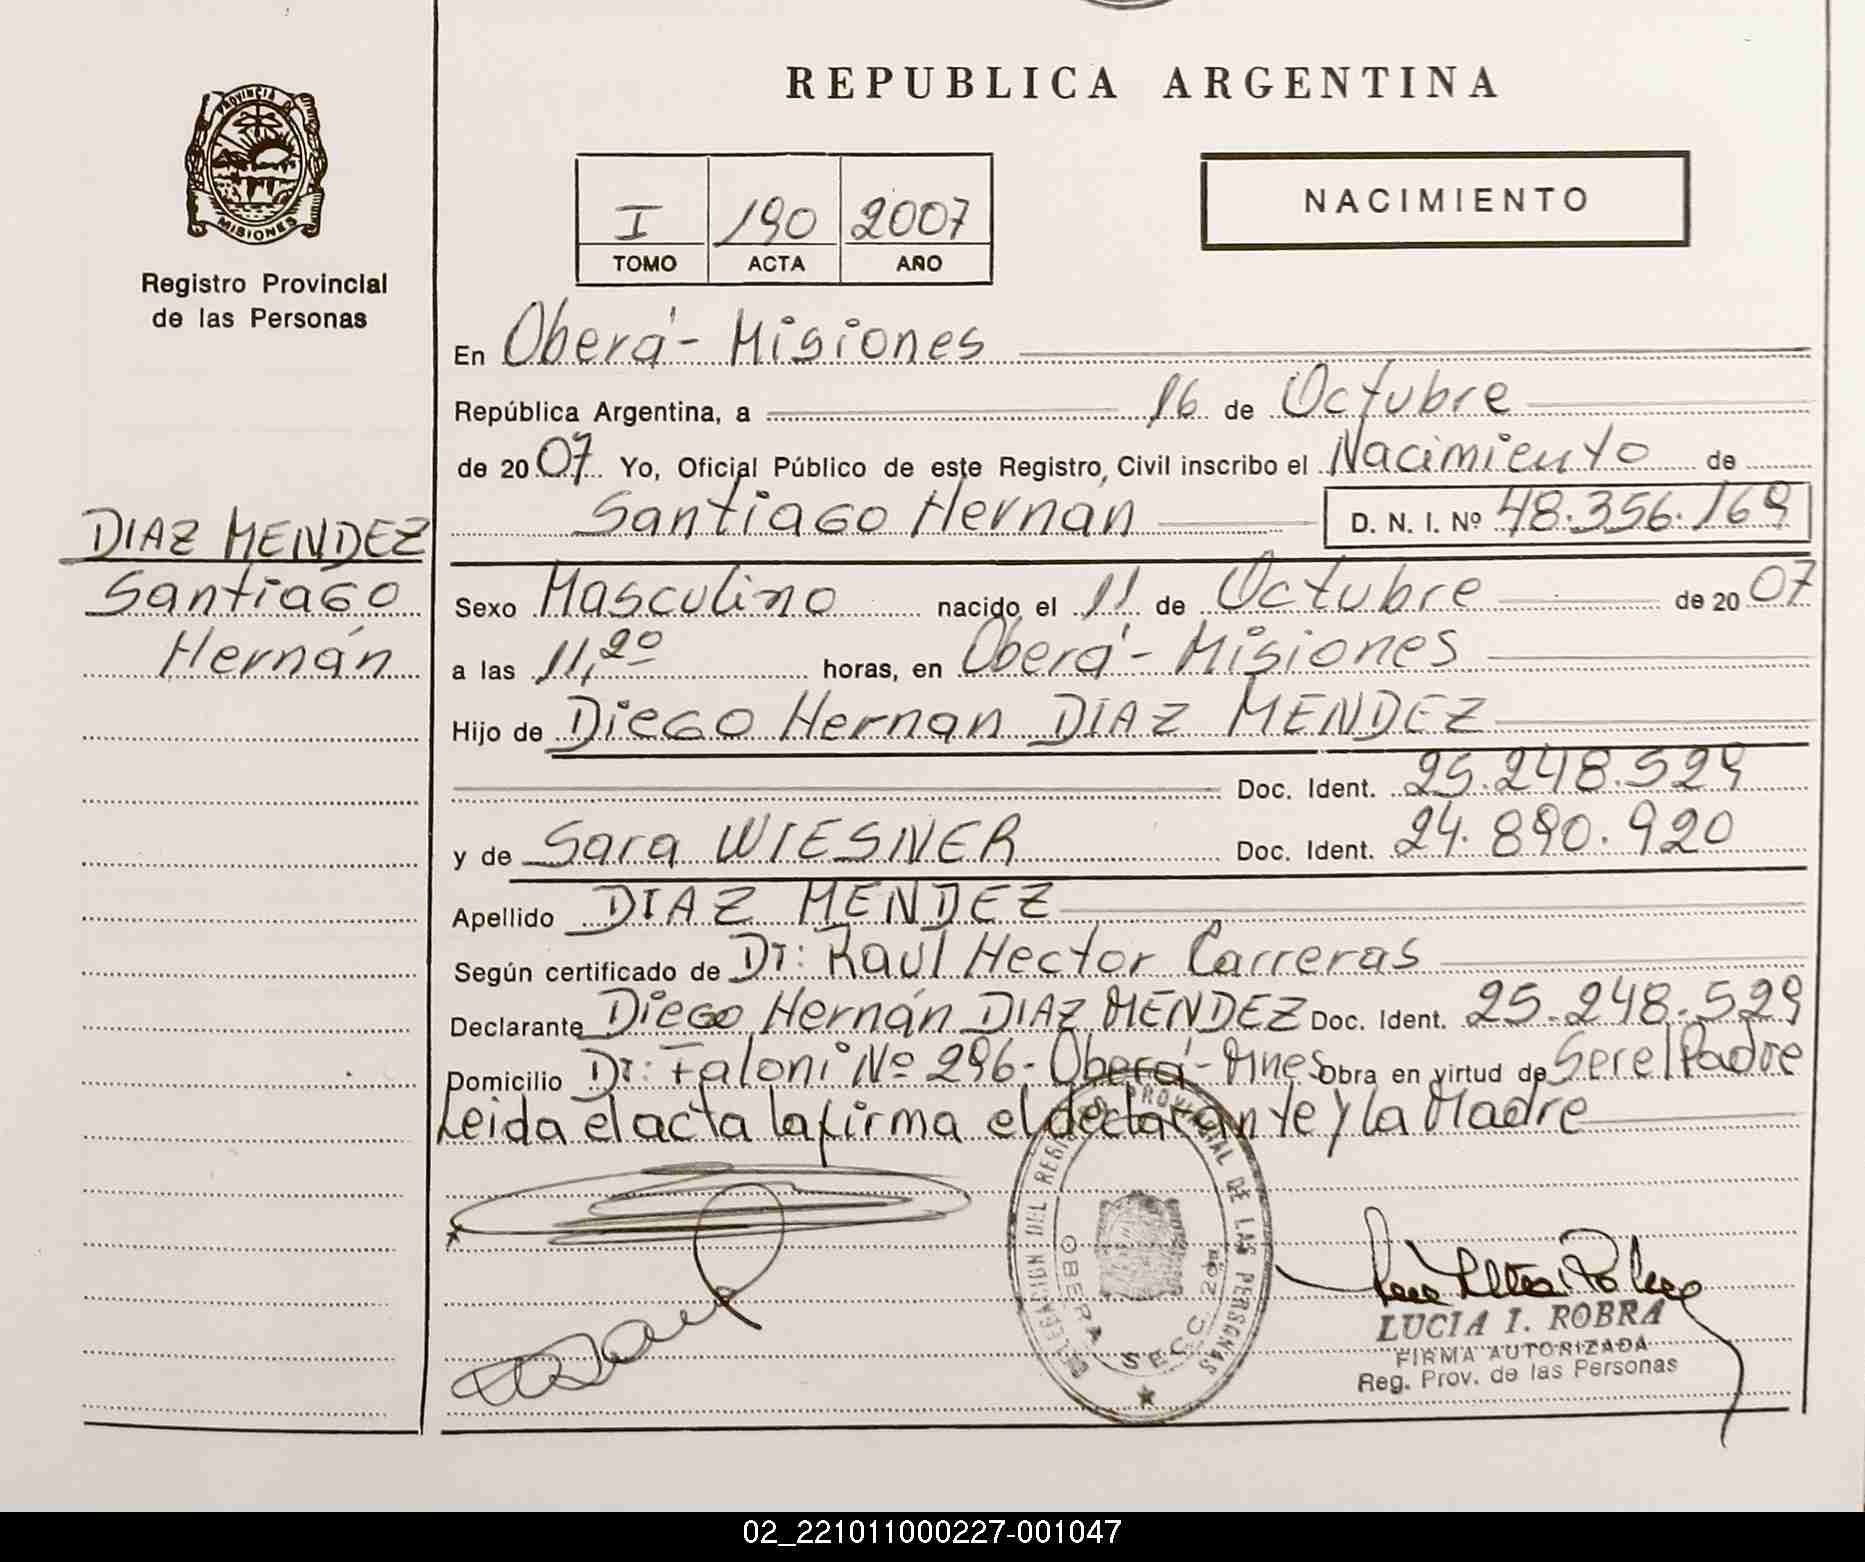 REPUBLICA ARGENTINA
PROVINCIA D
MISIONES
Registro Provincial
de las Personas
I 190 2007
TOMO ACTA AÑO
NACIMIENTO
En Oberá - Misiones
República Argentina, a 16 de Octubre
de 2007 Yo, Oficial Público de este Registro Civil inscribo el Nacimiento de
Santiago Hernán D. N. I. Nº 48.356.169
DIAZ MENDEZ
Santiago
Hernán
Sexo Masculino nacido el 11 de Octubre de 2007
a las 11,20 horas, en Oberá - Misiones
Hijo de Diego Hernan DIAZ MENDEZ
Doc. Ident. 25.248.529
y de Sara WIESNER Doc. Ident. 24.890.920
Apellido DIAZ MENDEZ
Según certificado de Dr: Raúl Hector Carreras
Declarante Diego Hernán DIAZ MENDEZ Doc. Ident. 25.248.529
Domicilio Dr: Faloni Nº 296 - Oberá - Mnes Obra en virtud de Ser el Padre
Leida el acta la firma el declarante y la Madre
DELEGACION DEL REGISTRO PROVINCIAL DE LAS PERSONAS
OBERA SECC. 2da
LUCIA I. ROBRA
FIRMA AUTORIZADA
Reg. Prov. de las Personas
02_221011000227-001047